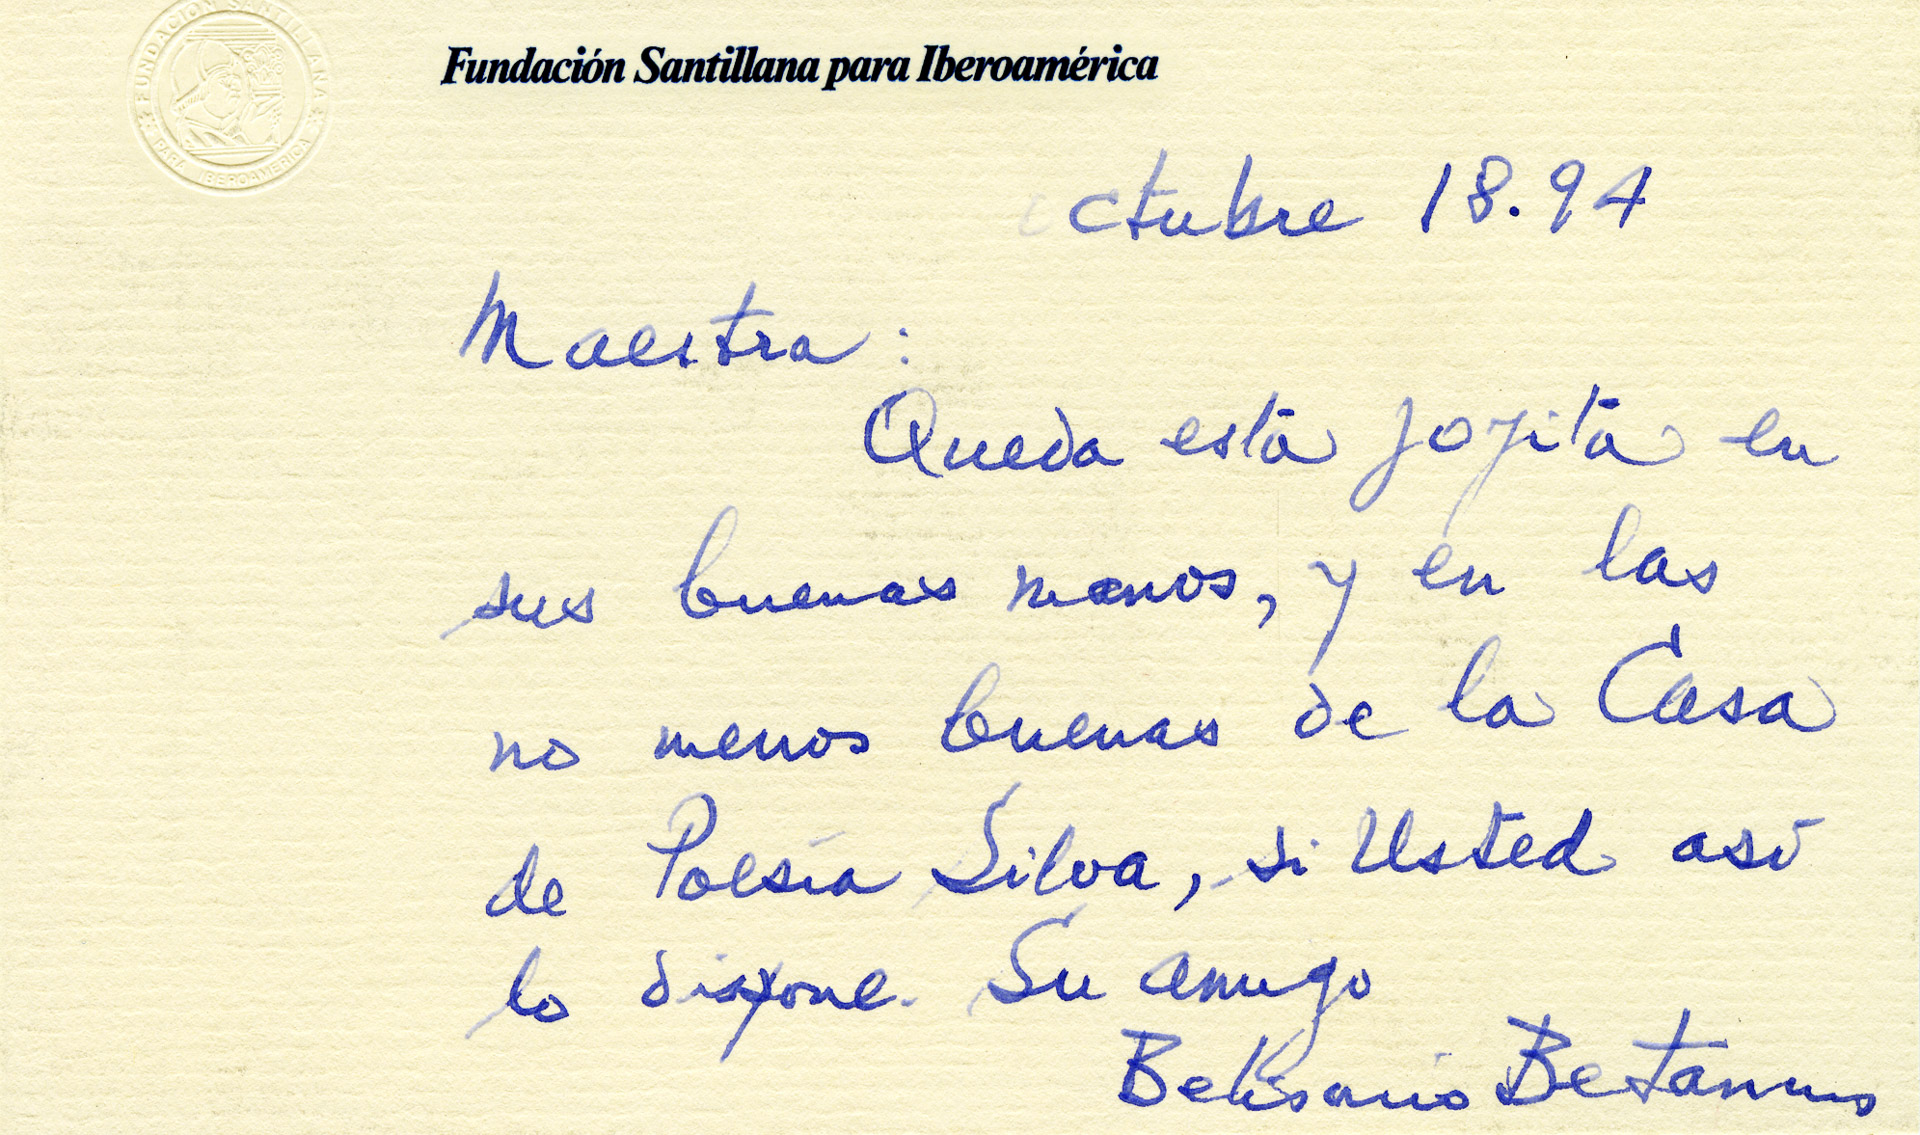 FUNDACION SANTILLANA
PARA IBEROAMERICA
Fundación Santillana para Iberoamérica
Octubre 18.94
Maestra:
Queda esta joyita en
sus buenas manos, y en las
no menos buenas de la Casa
de Poesía Silva, si Usted así
lo dispone. Su amigo
Belisario Betancur